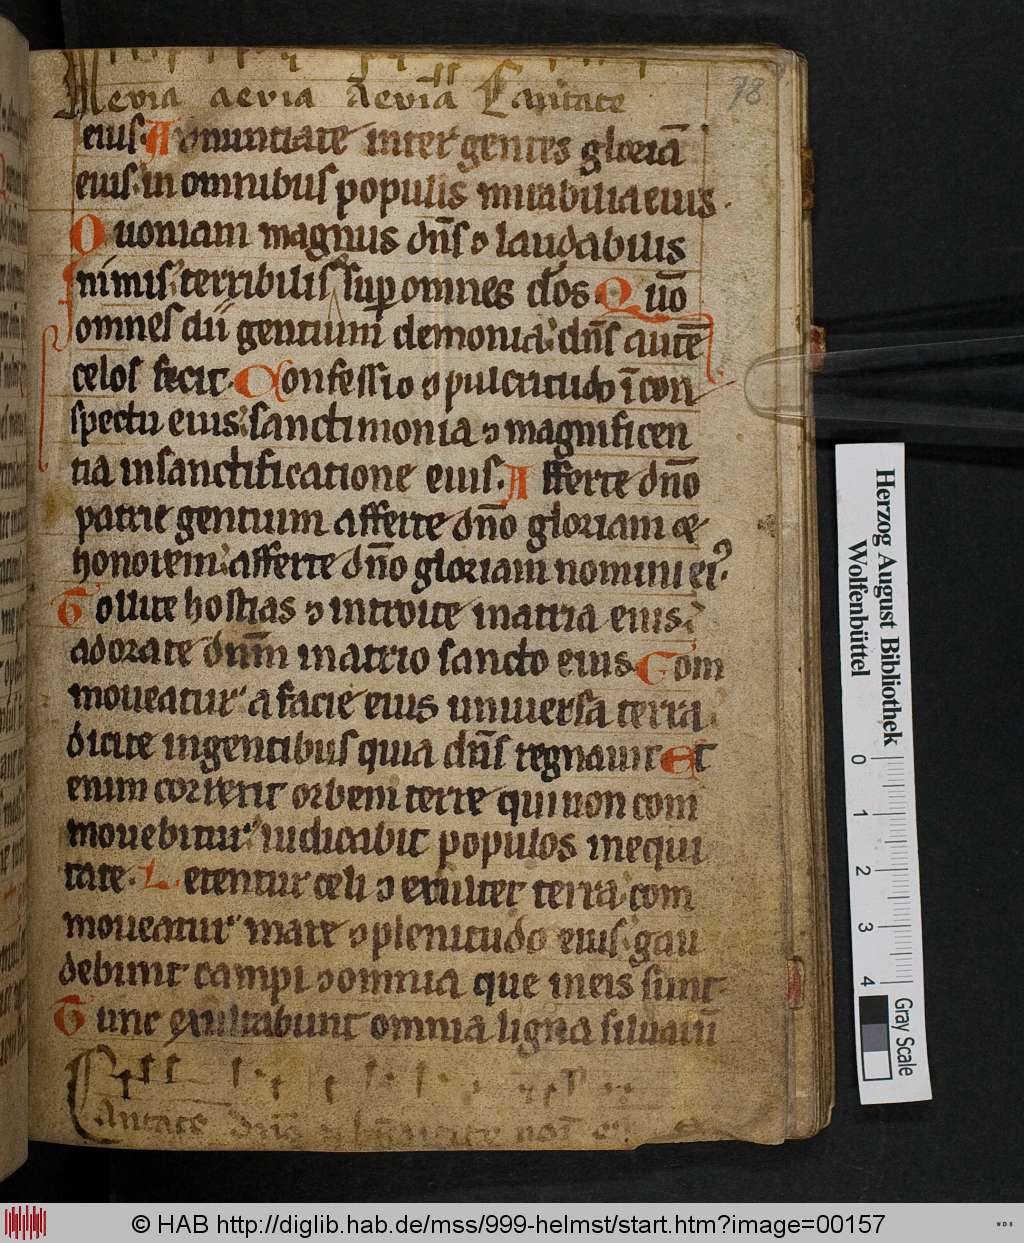 78
Aevia aevia Aevia Cantate
eius. Annuntiate inter gentes gloriā
eius: in omnibus populis mirabilia eius.
Quoniam magnus dn̄s ⁊ laudabilis
nimis: terribilis sup omnes deos. Quō
omnes dii gentium demonia: dn̄s autē
celos fecit. Confessio ⁊ pulcritudo ī con
spectu eius: sanctimonia ⁊ magnificen
tia in sanctificatione eius. Afferte dn̄o
patrie gentium afferte dn̄o gloriam et
honorem: afferte dn̄o gloriam nomini ei᾿.
Tollite hostias ⁊ introite in atria eius:
adorate dnm̄ in atrio sancto eius. Com
moveatur a facie eius universa terra
dicite in gentibus quia dn̄s regnavit. Et
enim correxit orbem terre qui non com
movebitur: iudicabit populos in equi
tate. Letentur celi ⁊ exultet terra: com
moveatur mare ⁊ plenitudo eius: gau
debunt campi ⁊ omnia que in eis sunt
Tunc exultabunt omnia ligna silvarū
Cantate dn̄o ⁊
Herzog August Bibliothek
Wolfenbüttel
0 1 2 3 4
Gray Scale
© HAB http://diglib.hab.de/mss/999-helmst/start.htm?image=00157